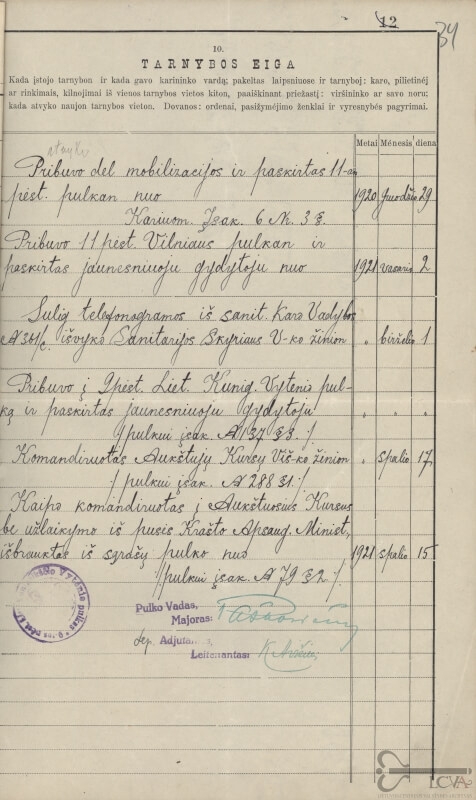 12
34
10.
TARNYBOS EIGA
Kada įstojo tarnybon ir kada gavo karininko vardą; pakeltas laipsniuose ir tarnyboj: karo, pilietinėj
ar rinkimais, kilnojimai iš vienos tarnybos vietos kiton, paaiškinant priežastį: viršininko ar savo noru;
kada atvyko naujon tarnybos vieton. Dovanos: ordenai, pasižymėjimo ženklai ir vyresnybės pagyrimai.
Metai Mėnesis diena
Pribuvo dėl mobilizacijos ir paskirtas 11-an
pėst. pulkan nuo 1920 Gruodžio 29
Kariuom. Įsak. 6 N. 3 §.
Pribuvo 11 pėst. Vilniaus pulkan ir
paskirtas jaunesniuoju gydytoju nuo 1921 vasario 2
Sulig telefonogramos iš sanit. Karo Valdybos
išvyko Sanitarijos Skyriaus V-ko žinion „ birželio 1
Pribuvo į 9 pėst. Liet. Kunig. Vytenio pul-
ką ir paskirtas jaunesniuoju gydytoju „ „ „
/pulkui įsak. № 137 § 3./
Komandiruotas Aukštųjų Kursų Virš-ko žinion „ spalio 17
/pulkui įsak. № 288 § 1./
Kaipo komandiruotas į Aukštuosius Kursus
be užlaikymo iš pusės Krašto Apsaug. Minist.,
išbrauktas iš sąrašų pulko nuo 1921 spalio 15
/pulkui įsak. № 79 § 2./
Pulko Vadas,
Majoras:
Adjutan
Leitenantas:
LCVA